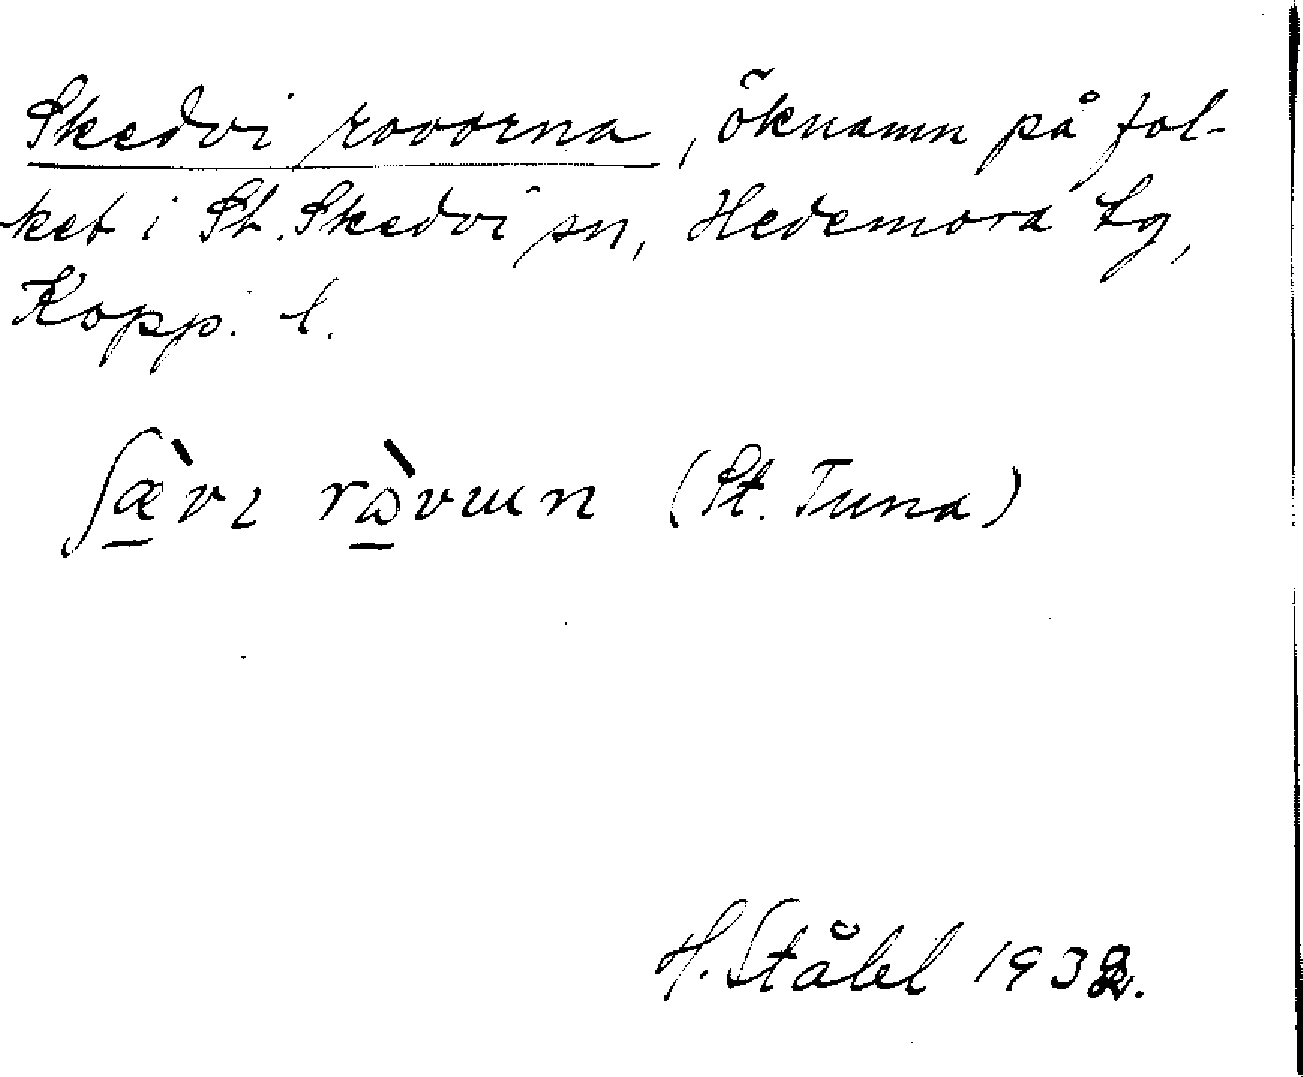 Skedvi rovorna, öknamn på fol-
ket i St. Skedvi sn, Hedemora tg,
Kopp. l.
ʃæ̀vɩ ràvɯn (St. Tuna)
H. Ståhl 1932.